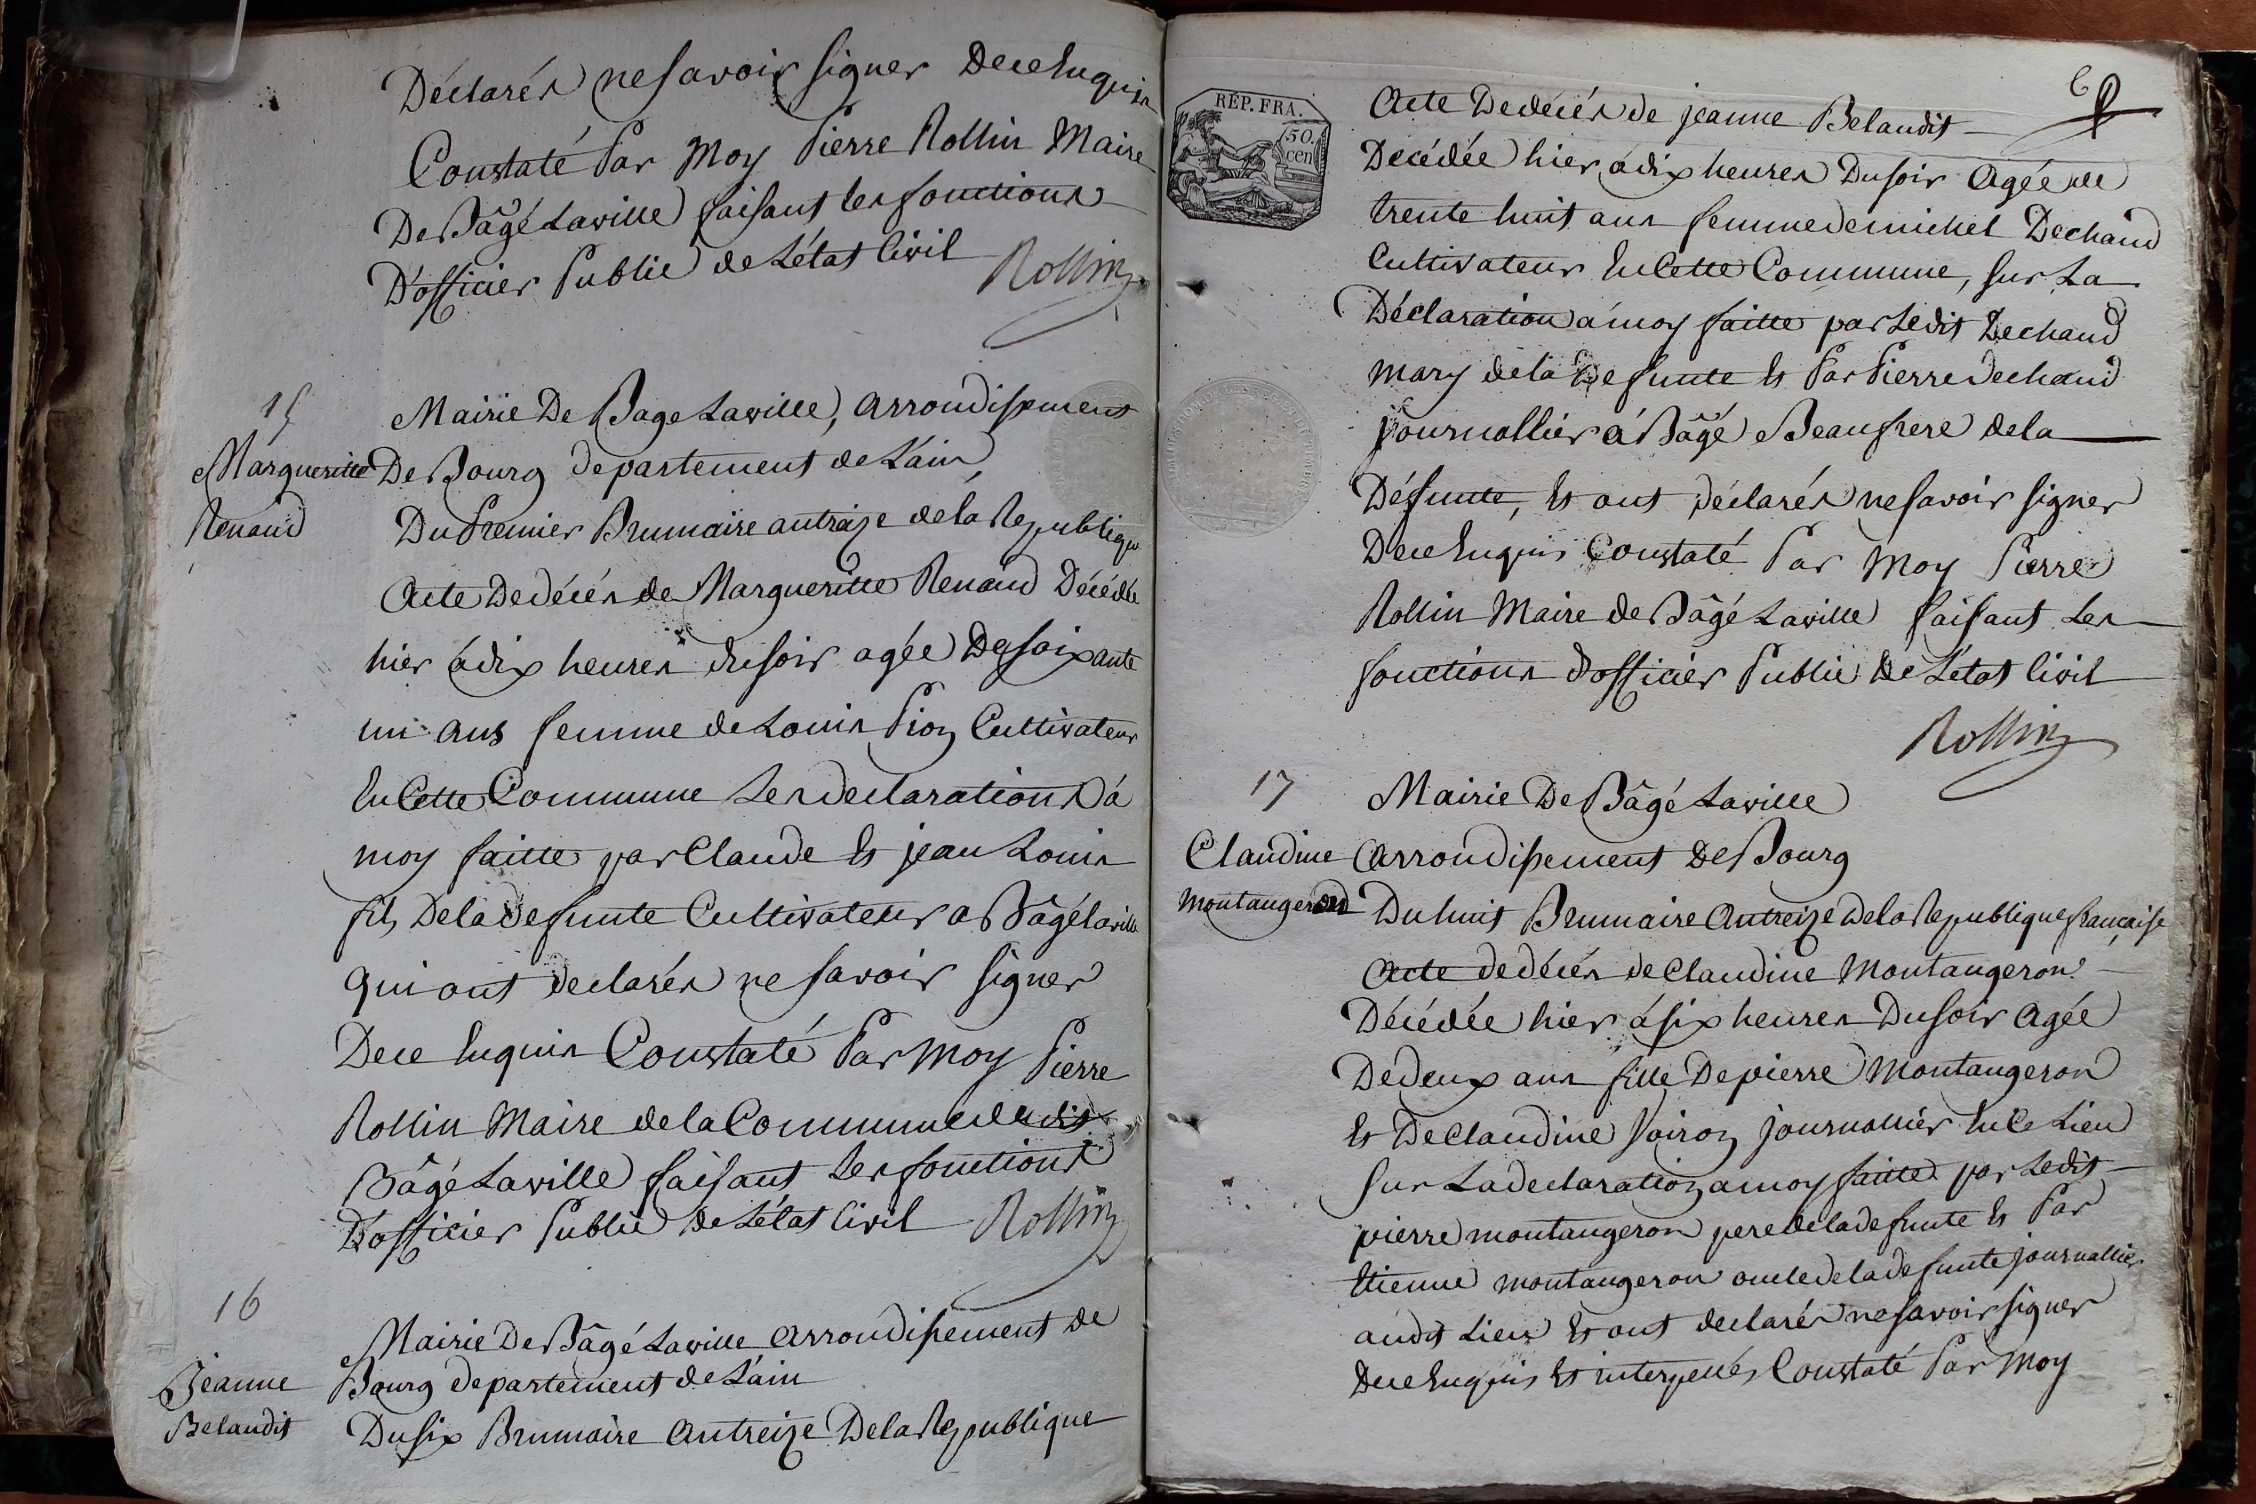 Déclarés ne savoir signer De ce Enquis
Constaté Par Moy Pierre Rollin Maire
De Bâgé Laville faisant les fonctions
D'officier Public de L'état Civil Rollin
15
Mairie De Bage Laville, arrondissement
Margueritte
De Bourg departement de L'ain,
Renaud
Du Premier Brumaire an traize de la Republique
Acte De décés de Margueritte Renaud Décédée
hier à dix heures du soir agée De soixante
un ans femme de Louis Pion Cultivateur
En Cette Commune Les declarations à
moy faitte par Claude Et jean Louis
fils De la defunte Cultivateur a Bâgé Laville
qui ont declarés ne savoir signer
De ce Enquis Constaté Par Moy Pierre
Rollin Maire de la Commune de
Bâgé Laville faisant Les fonctions
D'officier Public De L'état Civil Rollin
16
Mairie De Bâgé Laville arrondissement de
Jeanne
Bourg departement de L'ain
Belaudit
Du six Brumaire An treize De la Republique
RÉP. FRA.
50.
cen
6
Acte De décés de jeanne Belaudit
Décédée hier à dix heures Du soir Agée de
trente huit ans femme de michel Dechaud
Cultivateur En Cette Commune, sur La
Déclaration à moy faitte par Ledit Dechaud
mary de la Defunte Et Par Pierre dechaud
journallier à Bâgé Beaufrere de la
Défunte, Et ont déclarés ne savoir signer
De ce Enquis Constaté Par Moy Pierre
Rollin Maire de Bâgé Laville faisant Les
fonctions d'officier Public De L'état Civil
Rollin
17
Mairie De Bâgé Laville
Claudine
Arrondissement De Bourg
Montangeron
Du huit Brumaire An treize De la Republique française
Acte de décés de Claudine Montangeron
Décédée hier à six heures Du soir Agée
De deux ans fille De pierre Montangeron
Et De Claudine Voiron journallier En Ce Lieu
sur La declaration a moy faitte par Ledit
pierre montangeron pere de la defunte Et Par
Etienne montangeron oncle de la defunte journallier
audit Lieu Et ont declarés ne savoir signer
De ce Enquis Et interpellés Constaté Par Moy